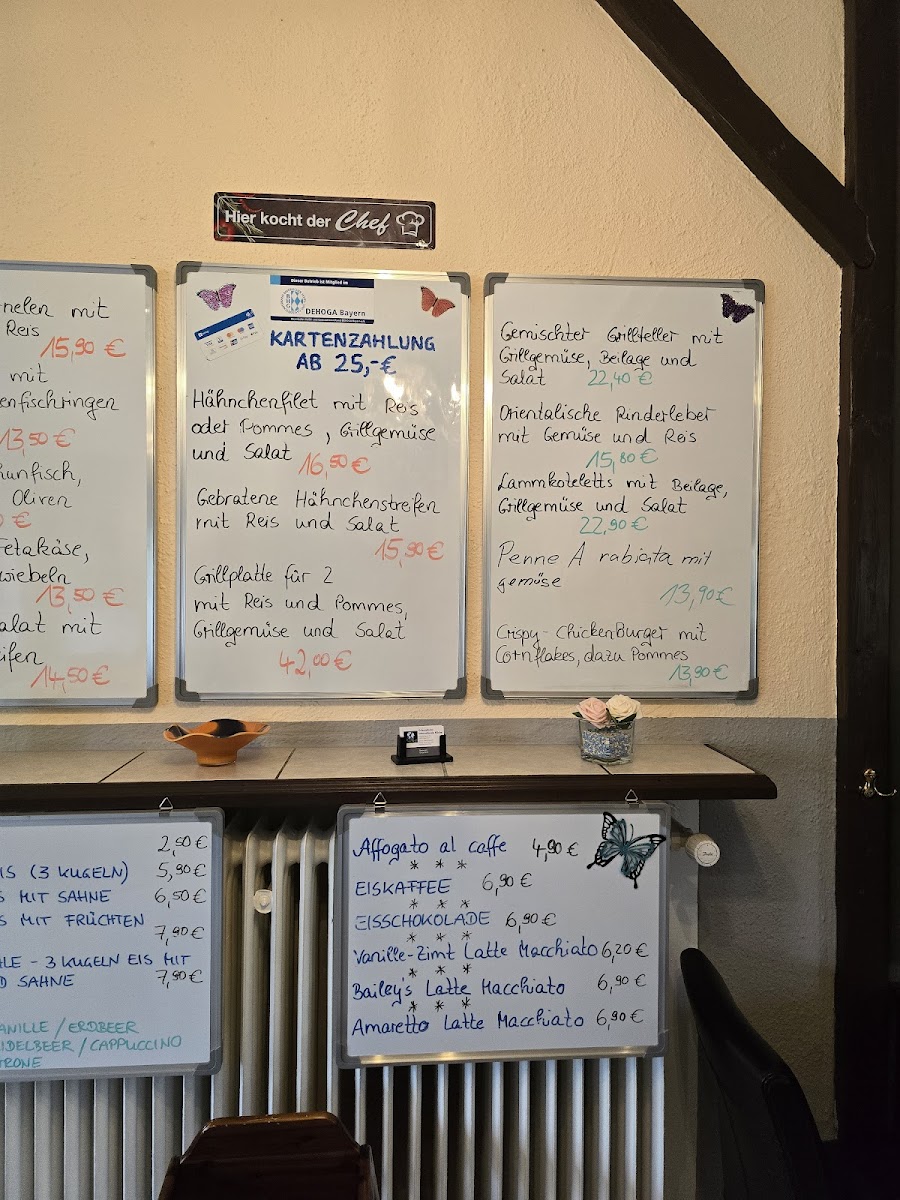 Hier kocht der Chef
nelen mit
Reis
15,90 €
mit
enfischringen
13,50 €
hunfisch,
Oliven
€
Fetakäse,
wiebeln
13,50 €
alat mit
eifen
14,50 €
Dieser Betrieb ist Mitglied im
DEHOGA Bayern
KARTENZAHLUNG
AB 25,-€
Hähnchenfilet mit Reis
oder Pommes , Grillgemüse
und Salat
16,50 €
Gebratene Hähnchenstreifen
mit Reis und Salat
15,90 €
Grillplatte für 2
mit Reis und Pommes,
Grillgemüse und Salat
42,00 €
Gemischter Grillteller mit
Grillgemüse, Beilage und
Salat 22,40 €
Orientalische Rinderleber
mit Gemüse und Reis
15,80 €
Lammkoteletts mit Beilage,
Grillgemüse und Salat
22,90 €
Penne A rabiata mit
gemüse
13,90 €
Crispy-ChickenBurger mit
Cornflakes, dazu Pommes
13,90 €
2,50 €
IS (3 KUGELN) 5,90 €
S MIT SAHNE 6,50 €
S MIT FRÜCHTEN
7,90 €
HLE - 3 KUGELN EIS MIT
D SAHNE 7,90 €
ANILLE / ERDBEER
IDELBEER / CAPPUCCINO
TRONE
Affogato al caffe 4,90 €
* * *
EISKAFFEE 6,90 €
* * *
EISSCHOKOLADE 6,90 €
* * *
Vanille-Zimt Latte Macchiato 6,20 €
* * *
Bailey's Latte Macchiato 6,90 €
* * *
Amaretto Latte Macchiato 6,90 €